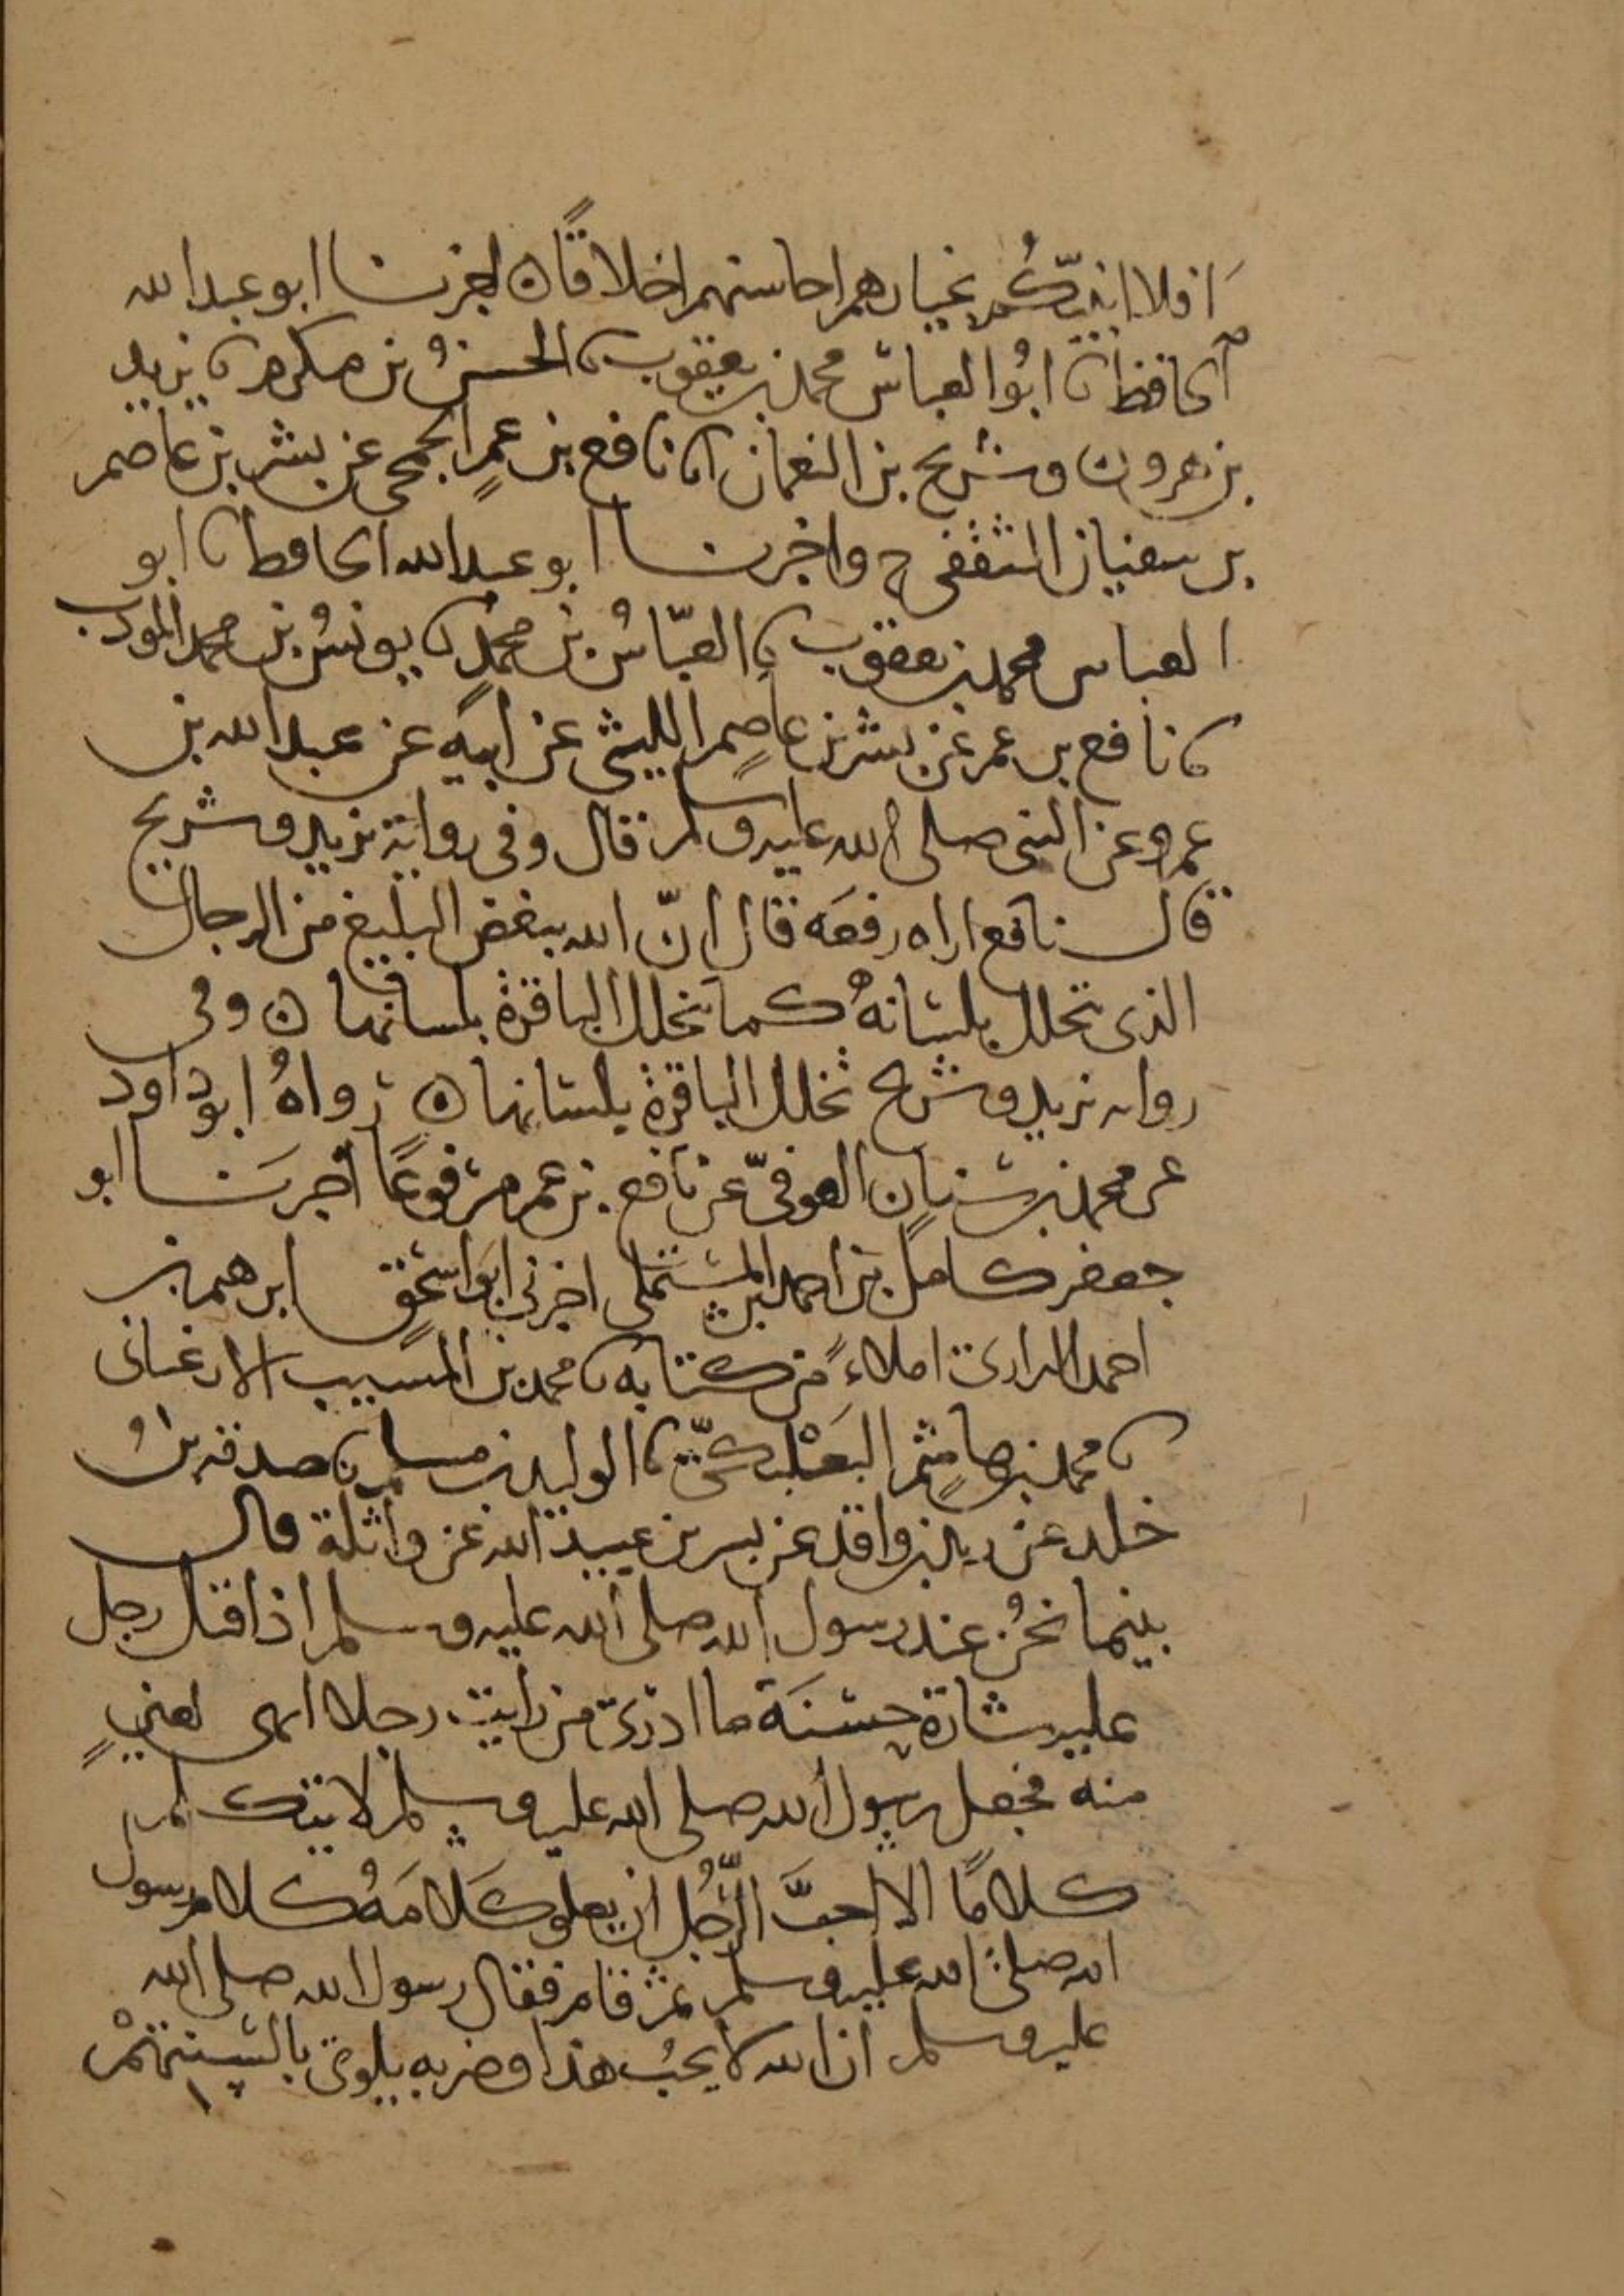 افلا انبئكم بخيارهم احاسنهم اخلاقا ٥ اخبرنا ابو عبدالله
الحافظ نا ابو العباس محمد بن يعقوب نا الحسن بن مكرم نا يزيد
بن هرون وسريج بن النعمان نا نافع بن عمر الجمحي عن بشر بن عاصم
بن سفيان الثقفي ح واخبرنا ابو عبدالله الحافظ نا ابو
العباس محمد بن يعقوب نا العباس بن محمد نا يونس بن محمد المودب
نا نافع بن عمر عن بشر بن عاصم الليثي عن ابيه عن عبدالله بن
عمرو عن النبي صلى الله عليه وسلم قال وفي رواية يزيد وسريج
قال نافع اراه رفعه قال ان الله يبغض البليغ من الرجال
الذي تخلل بلسانه كما تخلل الباقرة بلسانها ٥ وفي
رواية يزيد وسريج تخلل الباقرة بلسانها ٥ رواه ابو داود
عن محمد بن سنان العوقي عن نافع بن عمر مرفوعا اخبرنا ابو
جعفر كامل بن احمد المستملي اخبرني ابو اسحق ابرهيم بن
احمد الرازي املاء من كتابه نا محمد بن المسيب الارغياني
نا محمد بن هاشم البعلبكي نا الوليد بن مسلم نا صدقة بن
خلد عن زيد بن واقد عن بسر بن عبيد الله عن واثلة قال
بينما نحن عند رسول الله صلى الله عليه وسلم اذ اقبل رجل
عليه شارة حسنة ما ادري من رايت رجلا ابهى لعيني
منه فجعل رسول الله صلى الله عليه وسلم لا يتكلم
كلاما الا احب الرجل ان يعلو كلامه كلام رسول
الله صلى الله عليه وسلم ثم قام فقال رسول الله صلى الله
عليه وسلم ان الله لا يحب هذا وضربه يلوي بالسنتهم